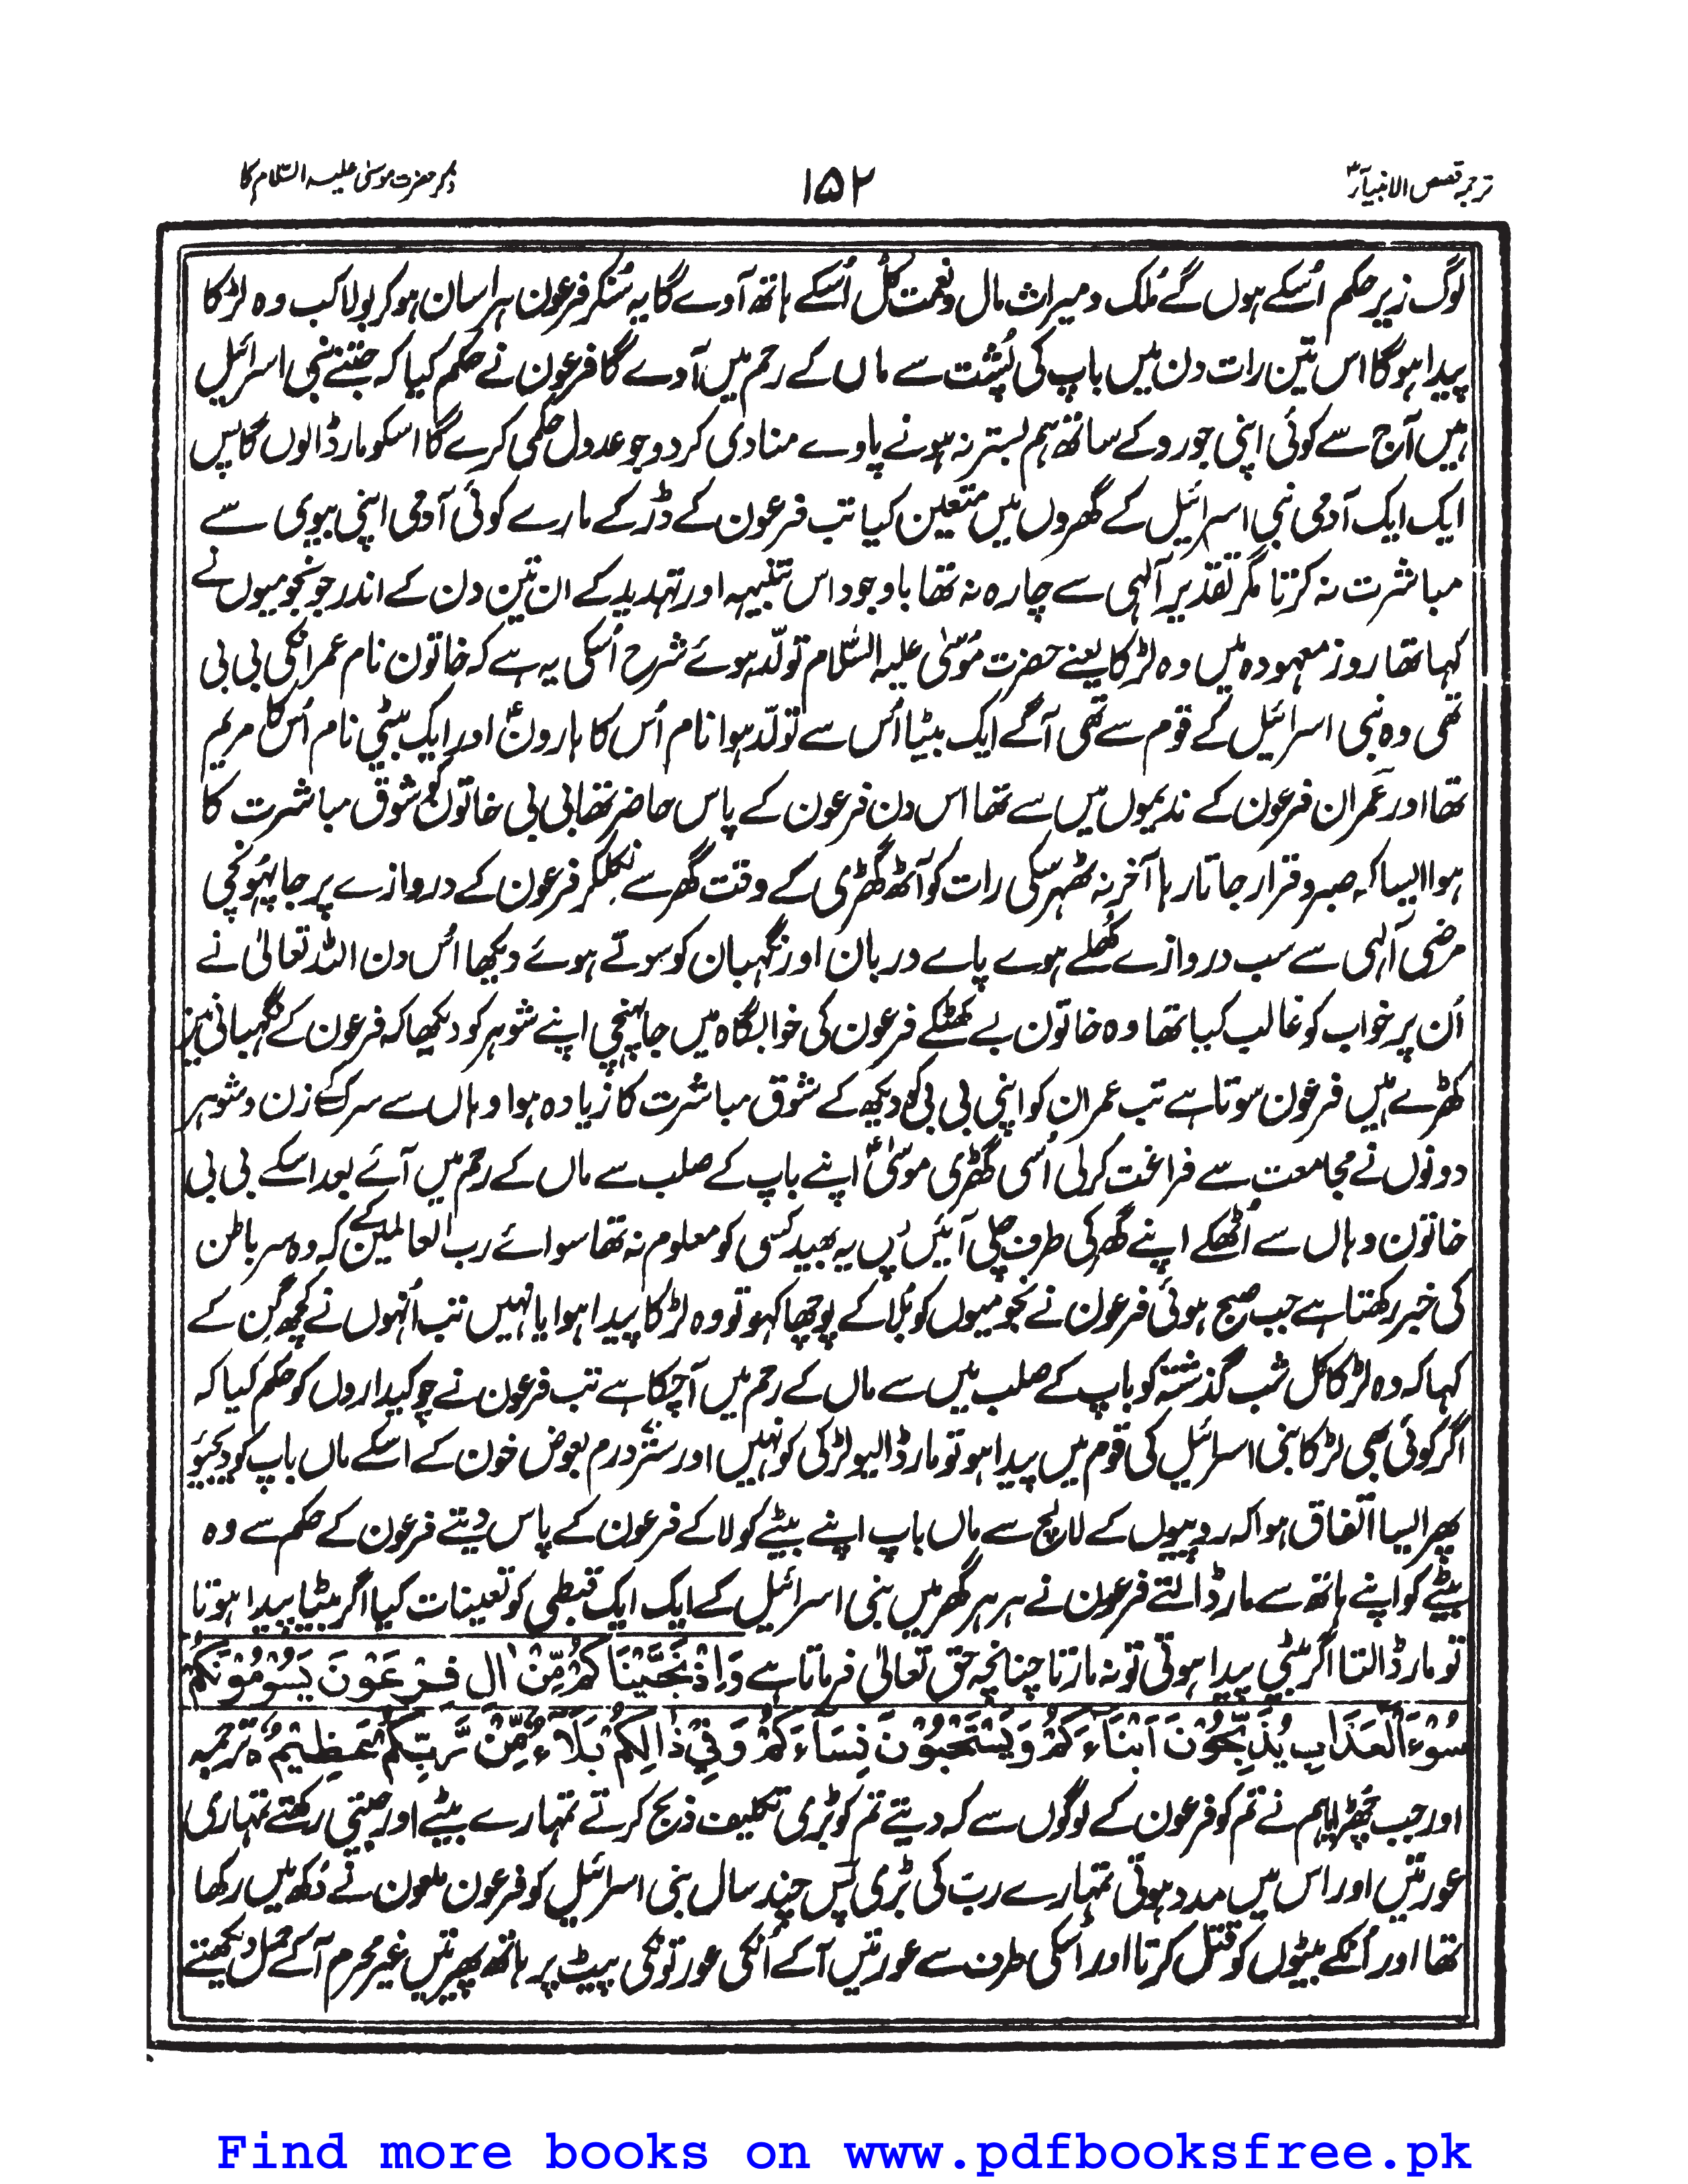 ترجمہ قصص الانبیآرؑ
۱۵۲
ذکر حضرت موسیٰ علیہ السّلام کا
لوگ زیر حکم اُسکے ہوں گے مُلک و میراث مال ونعمت کُل اُسکے ہاتھ آوے گا یہ سُنکر فرعون ہراسان ہوکر بولا کب وہ لڑکا
پیدا ہوگا اس تین رات دن میں باپ کی پُشت سے ماں کے رحم میں آوے گا فرعون نے حکم کیا کہ جتنے بنی اسرائیل
ہیں آج سے کوئی اپنی جورو کے ساتھ ہم بستر نہ ہونے پاوے منادی کردو جو عدول حکمی کرے گا اسکو مار ڈالوں گا پس
ایک ایک آدمی بنی اسرائیل کے گھروں میں متعین کیا تب فرعون کے ڈر کے مارے کوئی آدمی اپنی بیوی سے
مباشرت نہ کرتا مگر تقدیر آلہی سے چارہ نہ تھا باوجود اس تنبیہہ اور تہدید کے ان تین دن کے اندر جو نجومیوں نے
کہا تھا روز معہودہ میں وہ لڑکا یعنے حضرت موسّیٰ علیہ السّلام تولّد ہوئے شرح اُسکی یہ ہے کہ خاتون نام عمرانکی بی بی
تھی وہ بنی اسرائیل کے قوم سے تھی آگے ایک بیٹا اُس سے تولّد ہوا نام اُس کا ہارونؑ اور ایک بیٹی نام اُس کا مریم
تھا اور عمران فرعون کے ندیموں میں سے تھا اس دن فرعون کے پاس حاضر تھا بی بی خاتون کو شوق مباشرت کا
ہوا ایسا کہ صبر و قرار جاتا رہا آخر نہ ٹھہر سکی رات کو آٹھ گھڑی کے وقت گھر سے نکلکر فرعون کے دروازے پر جا پہُونچی
مرضی آلہی سے سب دروازے کُھلے ہوے پاے دربان اور نگہبان کو سوتے ہوئے دیکھا اُس دن اللہ تعالیٰ نے
اُن پر خواب کو غالب کیا تھا وہ خاتون بے کھٹکے فرعون کی خوابگاہ میں جا پہنچی اپنے شوہر کو دیکھا کہ فرعون کے نگہبانی میں
کھڑے ہیں فرعون سوتا ہے تب عمران کو اپنی بی بی کو دیکھ کے شوق مباشرت کا زیادہ ہوا وہاں سے سرک کے زن و شوہر
دونوں نے مجامعت سے فراغت کرلی اُسی گھڑی موسیٰؑ اپنے باپ کے صلب سے ماں کے رحم میں آئے بعد اسکے بی بی
خاتون وہاں سے اُٹھکے اپنے گھر کی طرف چلی آئیں پس یہ بھید کسی کو معلوم نہ تھا سوائے رب العالمین کے کہ وہ سر باطن
کی خبر رکھتا ہے جب صبح ہوئی فرعون نے نجومیوں کو بُلا کے پوچھا کہو تو وہ لڑکا پیدا ہوا یا نہیں تب اُنہوں نے کچھ گِن کے
کہا کہ وہ لڑکا کل شب گذشتہ کو باپ کے صلب میں سے ماں کے رحم میں آچکا ہے تب فرعون نے چوکیداروں کو حکم کیا کہ
اگر کوئی بھی لڑکا بنی اسرائیل کی قوم میں پیدا ہو تو مار ڈالیو لڑکی کو نہیں اور ستّر درم بعوض خون کے اسکے ماں باپ کو دیجیئو
پھر ایسا اتّفاق ہوا کہ روپیوں کے لالچ سے ماں باپ اپنے بیٹے کو لا کے فرعون کے پاس دیتے فرعون کے حکم سے وہ
بیٹے کو اپنے ہاتھ سے مار ڈالتے فرعون نے ہر ہر گھر میں بنی اسرائیل کے ایک ایک قبطی کو تعینات کیا اگر بیٹا پیدا ہوتا
تو مار ڈالتا اگر بیٹی پیدا ہوتی تو نہ مارتا چنانچہ حق تعالیٰ فرماتا ہے وَاِذْ نَجَّيْنَا كُمْ مِّنْ اٰلِ فِرْعَوْنَ يَسُوْمُوْنَكُمْ
سُوْءَ الْعَذَابِ يُذَبِّحُوْنَ اَبْنَاءَكُمْ وَيَسْتَحْيُوْنَ نِسَاءَكُمْ وَفِيْ ذٰالِكُمْ بَلَاءٌ مِّنْ رَّبِّكُمْ عَظِيْمٌ ہ ترجمہ
اور جب چُھڑایا ہم نے تم کو فرعون کے لوگوں سے کہ دیتے تم کو بڑی تکلیف ذبح کرتے تمہارے بیٹے اور جیتی رکھتے تمہاری
عورتیں اور اس میں مدد ہوتی تمہارے ربّ کی بڑی پس چند سال بنی اسرائیل کو فرعون ملعون نے دُکھ میں رکھا
تھا اور اُنکے بیٹوں کو قتل کرتا اور اُسکی طرف سے عورتیں آکے اُنکی عورتونکی پیٹ پر ہاتھ پھیرتیں غیر محرم آکے حمل دیکھتے
Find more books on www.pdfbooksfree.pk